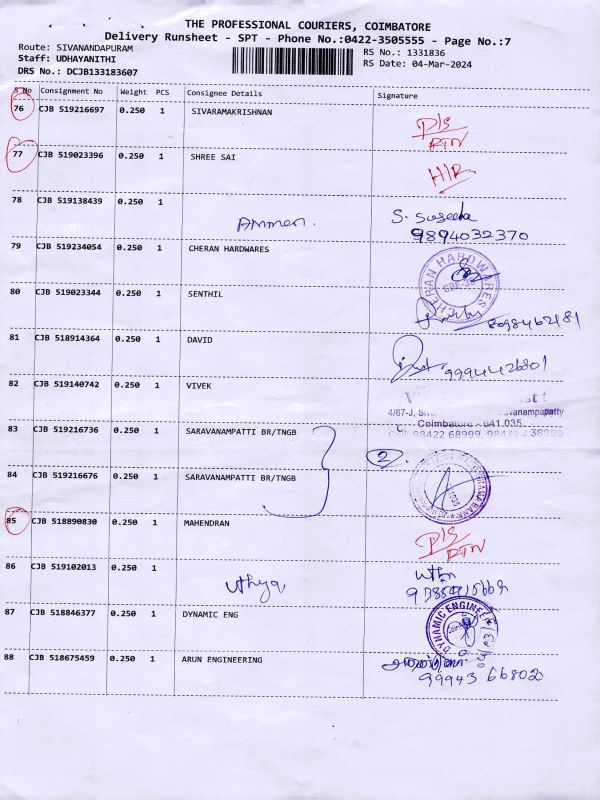 THE PROFESSIONAL COURIERS, COIMBATORE
Delivery Runsheet - SPT - Phone No.:0422-3505555 - Page No.:7
Route: SIVANANDAPURAM
Staff: UDHAYANITHI
DRS No.: DCJB133183607
RS No.: 1331836
RS Date: 04-Mar-2024
S No Consignment No Weight PCS Consignee Details Signature
76 CJB 519216697 0.250 1 SIVARAMAKRISHNAN
D/S
RTN
77 CJB 519023396 0.250 1 SHREE SAI
H/R
78 CJB 519138439 0.250 1 Ammen. S. Suseela
9894032370
79 CJB 519234054 0.250 1 CHERAN HARDWARES
CHERAN HARDWARES
CBE-35
80 CJB 519023344 0.250 1 SENTHIL
81 CJB 518914364 0.250 1 DAVID
9994426801
82 CJB 519140742 0.250 1 VIVEK
4/67-J,
Coimbatore - 641 035
98422 68999
83 CJB 519216736 0.250 1 SARAVANAMPATTI BR/TNGB
2.
84 CJB 519216676 0.250 1 SARAVANAMPATTI BR/TNGB
85 CJB 518890830 0.250 1 MAHENDRAN
D/S
RTN
86 CJB 519102013 0.250 1 Uthya
87 CJB 518846377 0.250 1 DYNAMIC ENG
DYNAMIC ENGINEE
88 CJB 518675459 0.250 1 ARUN ENGINEERING
99943 66802